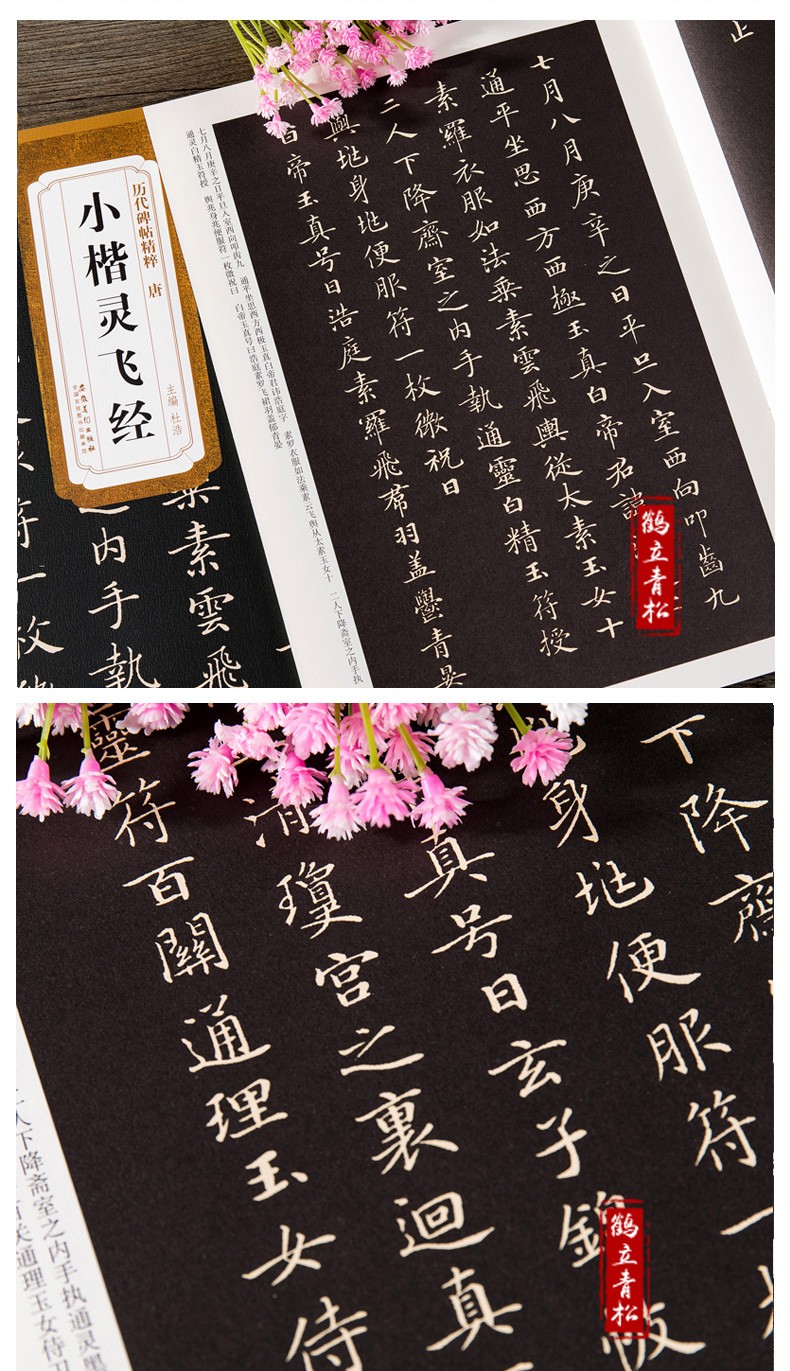 止
七月八月庚辛之日平旦入室西向叩齒九
通平坐思西方西極玉真白帝君諱
素羅衣服如法乘素雲飛輿從太素玉女十
二人下降齋室之内手執通靈白精玉符授
與地身地便服符一枚微祝曰
白帝玉真号曰浩庭素羅飛帬羽盖鬱青晏
七月八月庚辛之日平旦入室西向叩齿九
通平坐思西方西极玉真白帝君讳浩庭字
素罗衣服如法乘素云飞舆从太素玉女十
二人下降斋室之内手执
通灵白精玉符授
舆兆身兆便服符一枚微祝曰
白帝玉真号曰浩庭素罗飞裙羽盖郁青晏
历代碑帖精粹 唐
小楷灵飞经
主编 杜浩
安徽美术出版社
乘素雲飛
之内手執
符一枚
鹤立青松
下降齋
身地便服符一
真号曰玄子
瓊宫之裏迴真
靈符百關通理玉女侍
人下降斋室之内手执通灵黑
关通理玉女侍
鹤立青松